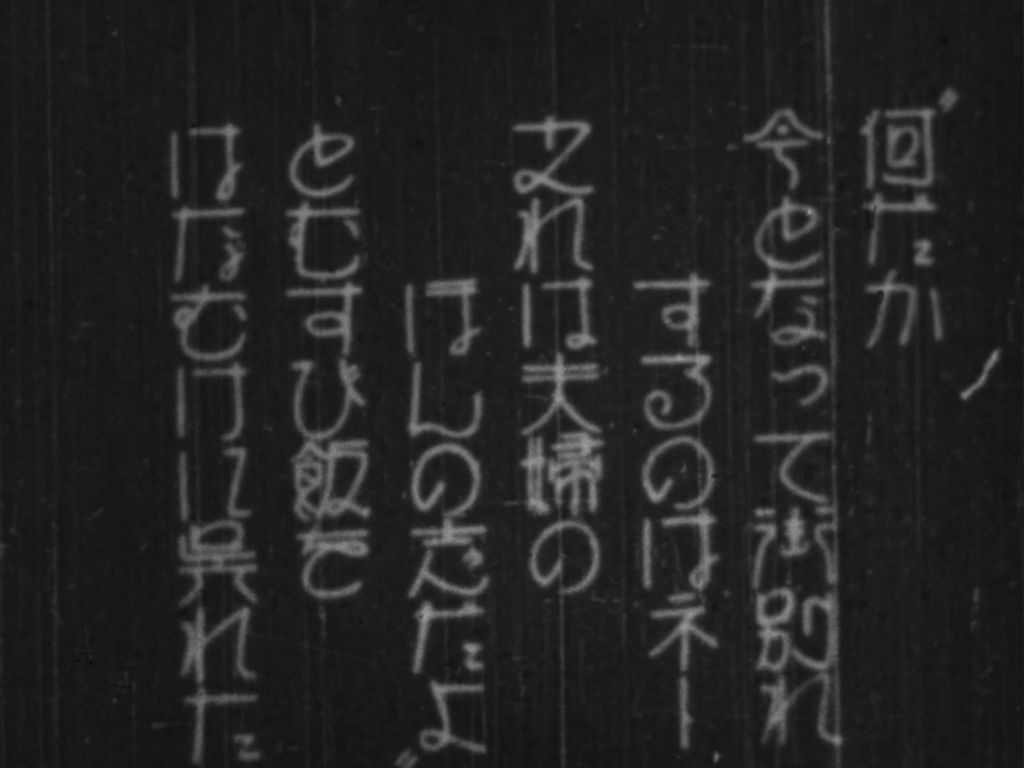 〝何だか
今となって御別れ
するのはネー
之れは夫婦の
ほんの志だよ〟
とむすび飯を
はなむけに呉れた